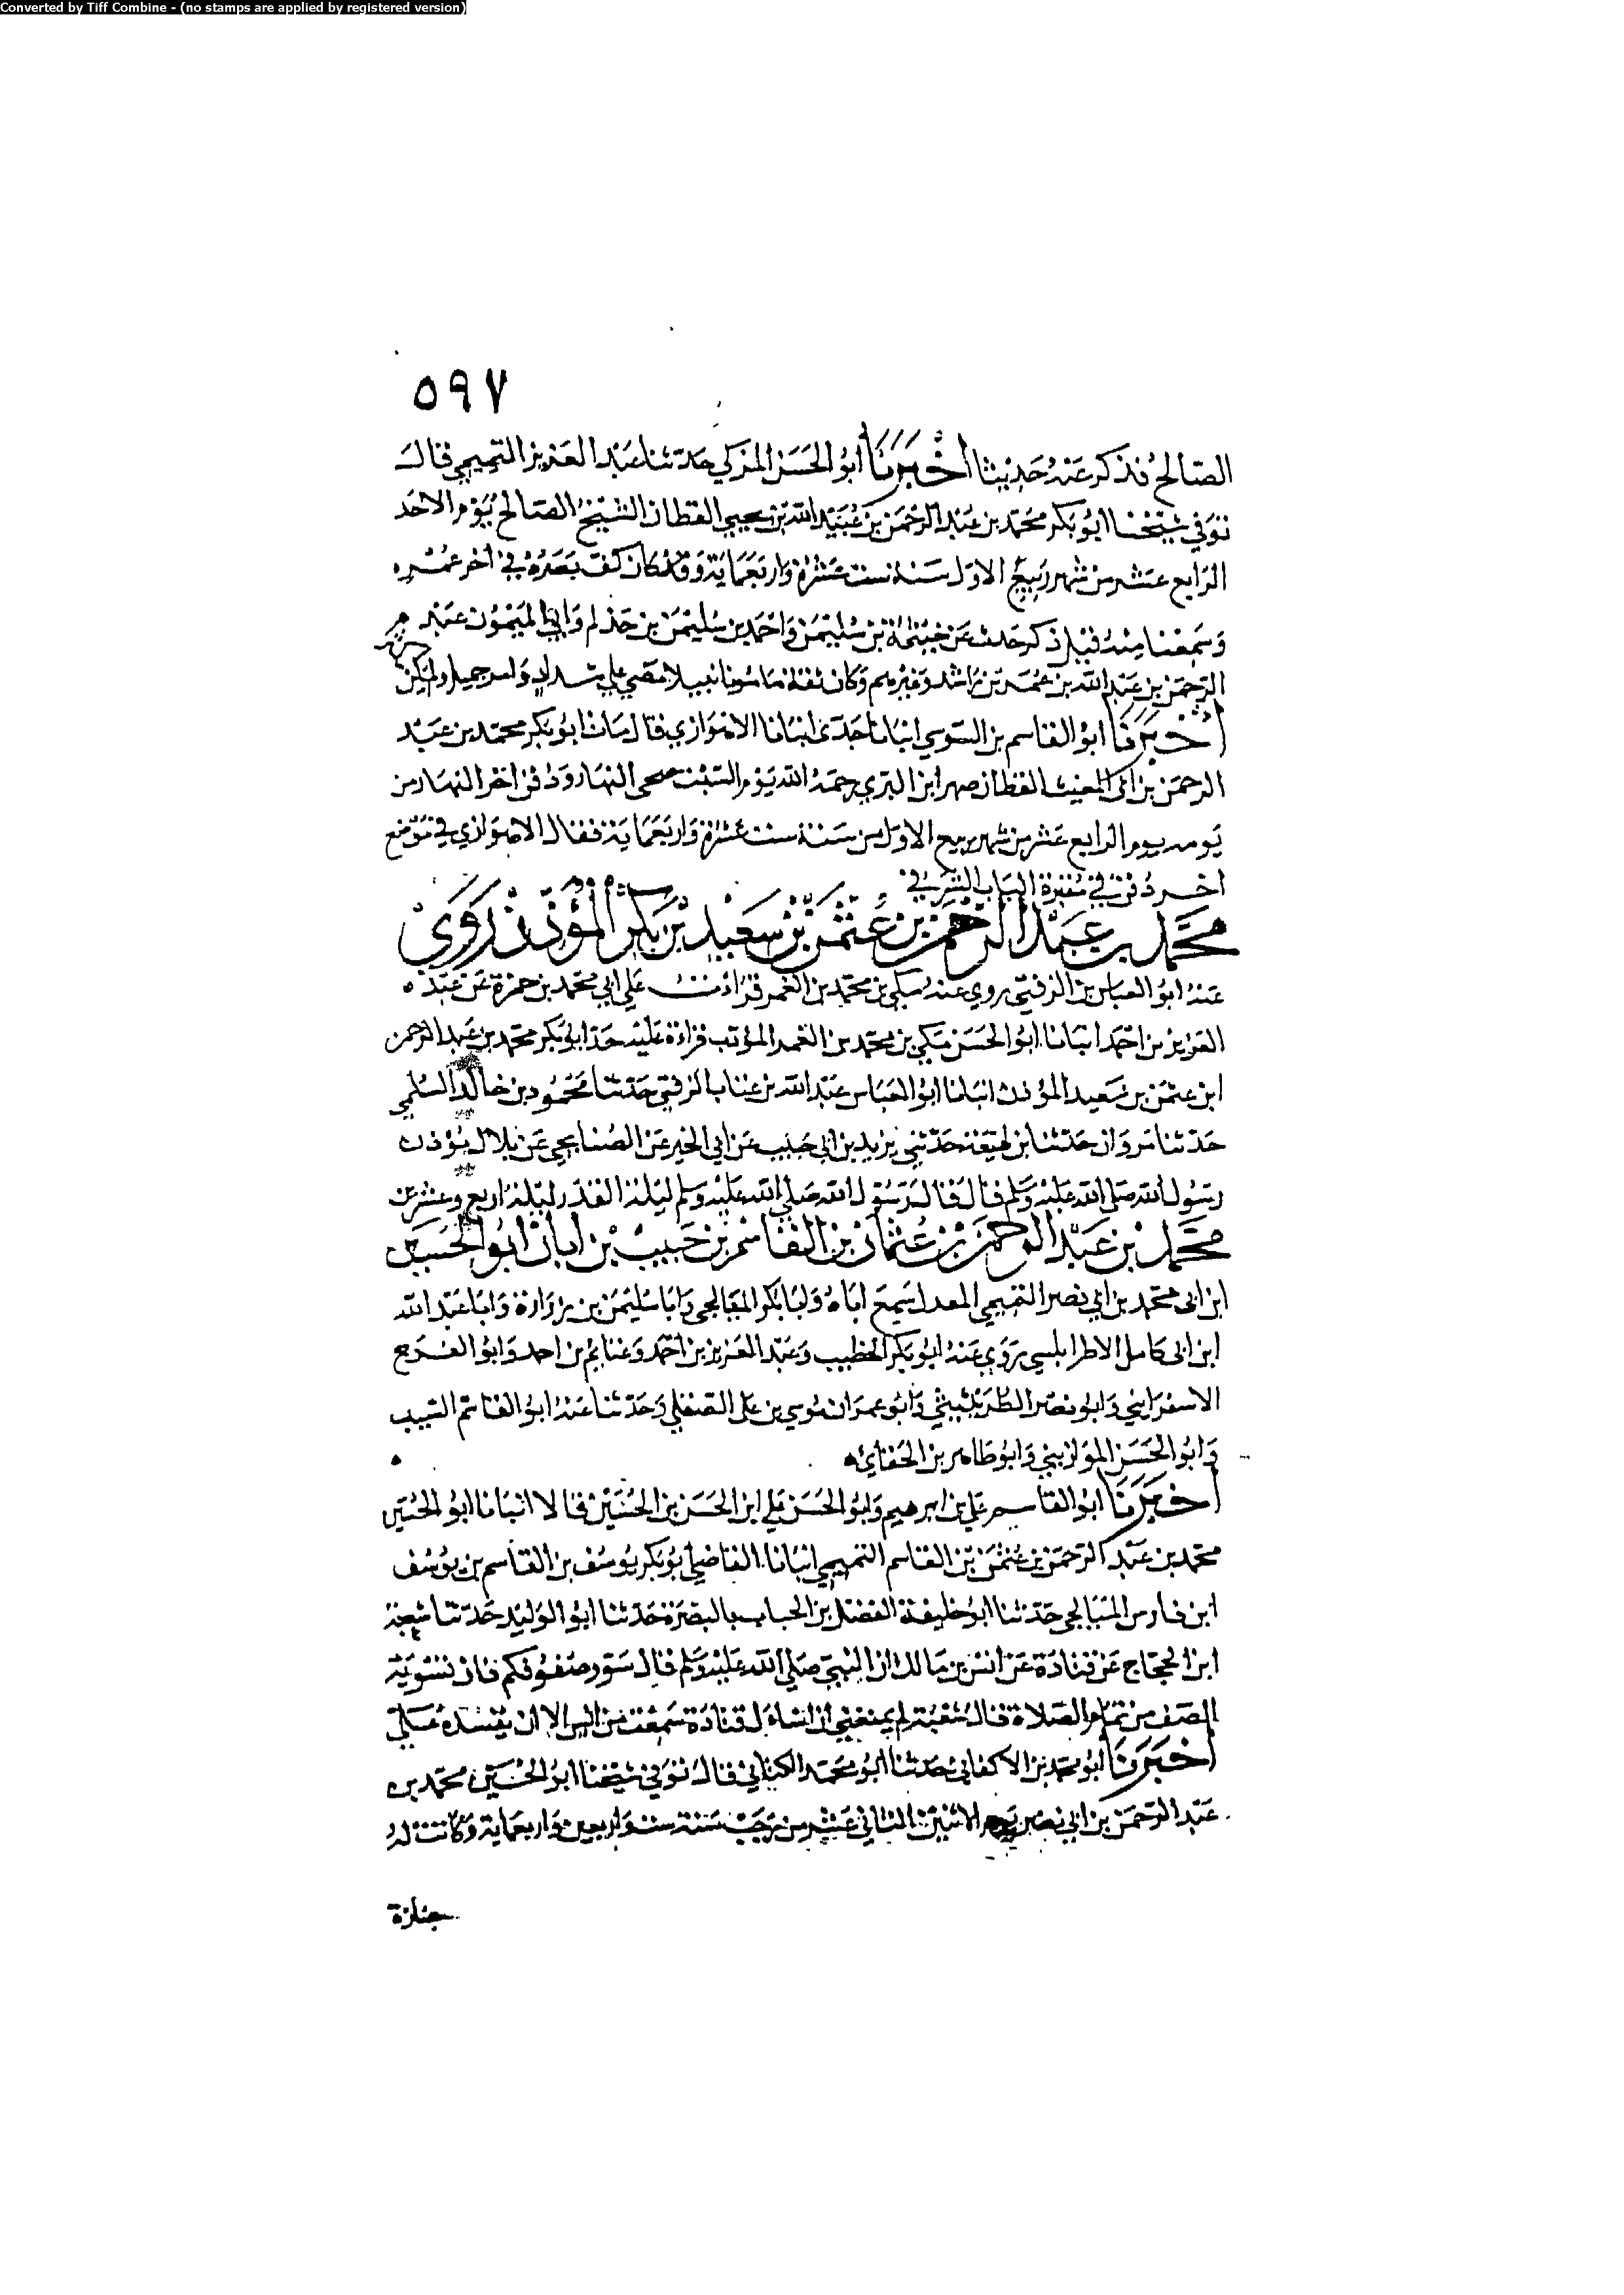 Converted by Tiff Combine - (no stamps are applied by registered version)
٥٩٧
الصالح فذكر عنه حديثا اخبرنا ابو الحسن المزكي حدثنا عبد العزيز التميمي قال
توفي شيخنا ابو بكر محمد بن عبد الرحمن بن عبيد الله بن يحيى القطان الشيخ الصالح يوم الاحد
الرابع عشر من شهر ربيع الاول سنة ست عشرة واربعماية وقد كان كف بصره في اخر عمره
وسمعنا منه قبل ذكر حدث عن خيثمة بن سليمن واحمد بن سليمن بن حذلم وابي الميمون عبد
الرحمن بن عبد الله بن عمر بن راشد وغيرهم وكان ثقة مامونا نبيلا مضى على سداد وامر جميل
اخبرنا ابو القاسم بن السوسي انبانا جدى انبانا الاهوازي قال مات ابو بكر محمد بن عبد
الرحمن بن ابى المغيث القطان صهر ابن البري رحمه الله يوم السبت ضحى النهار ودفن اخر النهار من
يومه يوم الرابع عشر من شهر ربيع الاول من سنة ست عشرة واربعماية فقال الاهوازي في موضع
اخر دفن في مقبرة الباب الشرقي
محمد بن عبد الرحمن بن عثمن بن سعيد بن بكر المؤذن روى
عنه ابو العباس بن الزفتي روي عنه مكي بن محمد بن الغمر قرات على ابي محمد بن حمزة عن عبد
العزيز بن احمد انبانا ابو الحسن مكي بن محمد بن الغمر المؤدب قراءة عليه حد ابو بكر محمد بن عبد الرحمن
ابن عثمن بن سعيد المؤذن انبانا ابو العباس عبد الله بن عتاب الزفتي حدثنا محمود بن خالد السلمي
حدثنا مروان حدثنا ابن لهيعة حدثني يزيد بن ابي حبيب عن ابي الخير عن الصنابحي عن بلال مؤذن
رسول الله صلى الله عليه وسلم قال قال رسول الله صلى الله عليه وسلم ليلة القدر ليلة اربع وعشرين
محمد بن عبد الرحمن بن عثمان بن القاسم بن حبيب بن ابان ابو الحسين
ابن ابى محمد بن ابي نصر التميمي المعدل سمع اباه وابا بكر الميانجى وابا سليمن بن زبر وابا عبد الله
ابن ابى كامل الاطرابلسي روي عنه ابو بكر الخطيب وعبد العزيز بن احمد وغنائم بن احمد وابو الفرج
الاسفرايني وابو نصر الطريثيثي وابو عمران موسي بن على الصقلي وحدثنا عنه ابو القاسم النسيب
وابو الحسن الموازيني وابو طاهر بن الحنائي
اخبرنا ابو القاسم علي بن ابرهيم وابو الحسن علي ابن الحسن بن الحسين قالا انبانا ابو الحسين
محمد بن عبد الرحمن بن عثمن بن القاسم التميمي انبانا القاضي ابو بكر يوسف بن القاسم بن يوسف
ابن فارس الميانجى حدثنا ابو خليفة الفضل بن الحباب بالبصرة حدثنا ابو الوليد حدثنا شعبة
ابن الحجاج عن قتادة عن انس بن مالك ان النبي صلى الله عليه وسلم قال سوو صفوفكم فان تسوية
الصف من تمام الصلاة قال شعبة لم يمنعني ان اسال قتادة سمعت من انس الا ان يفسده علي
اخبرنا ابو محمد بن الاكفاني حدثنا ابو محمد الكتاني قال توفي شيخنا ابو الحسين محمد بن
عبد الرحمن بن ابي نصر يوم الاثنين الثاني عشر من رجب سنة ست واربعين واربعماية وكانت له
جنازة